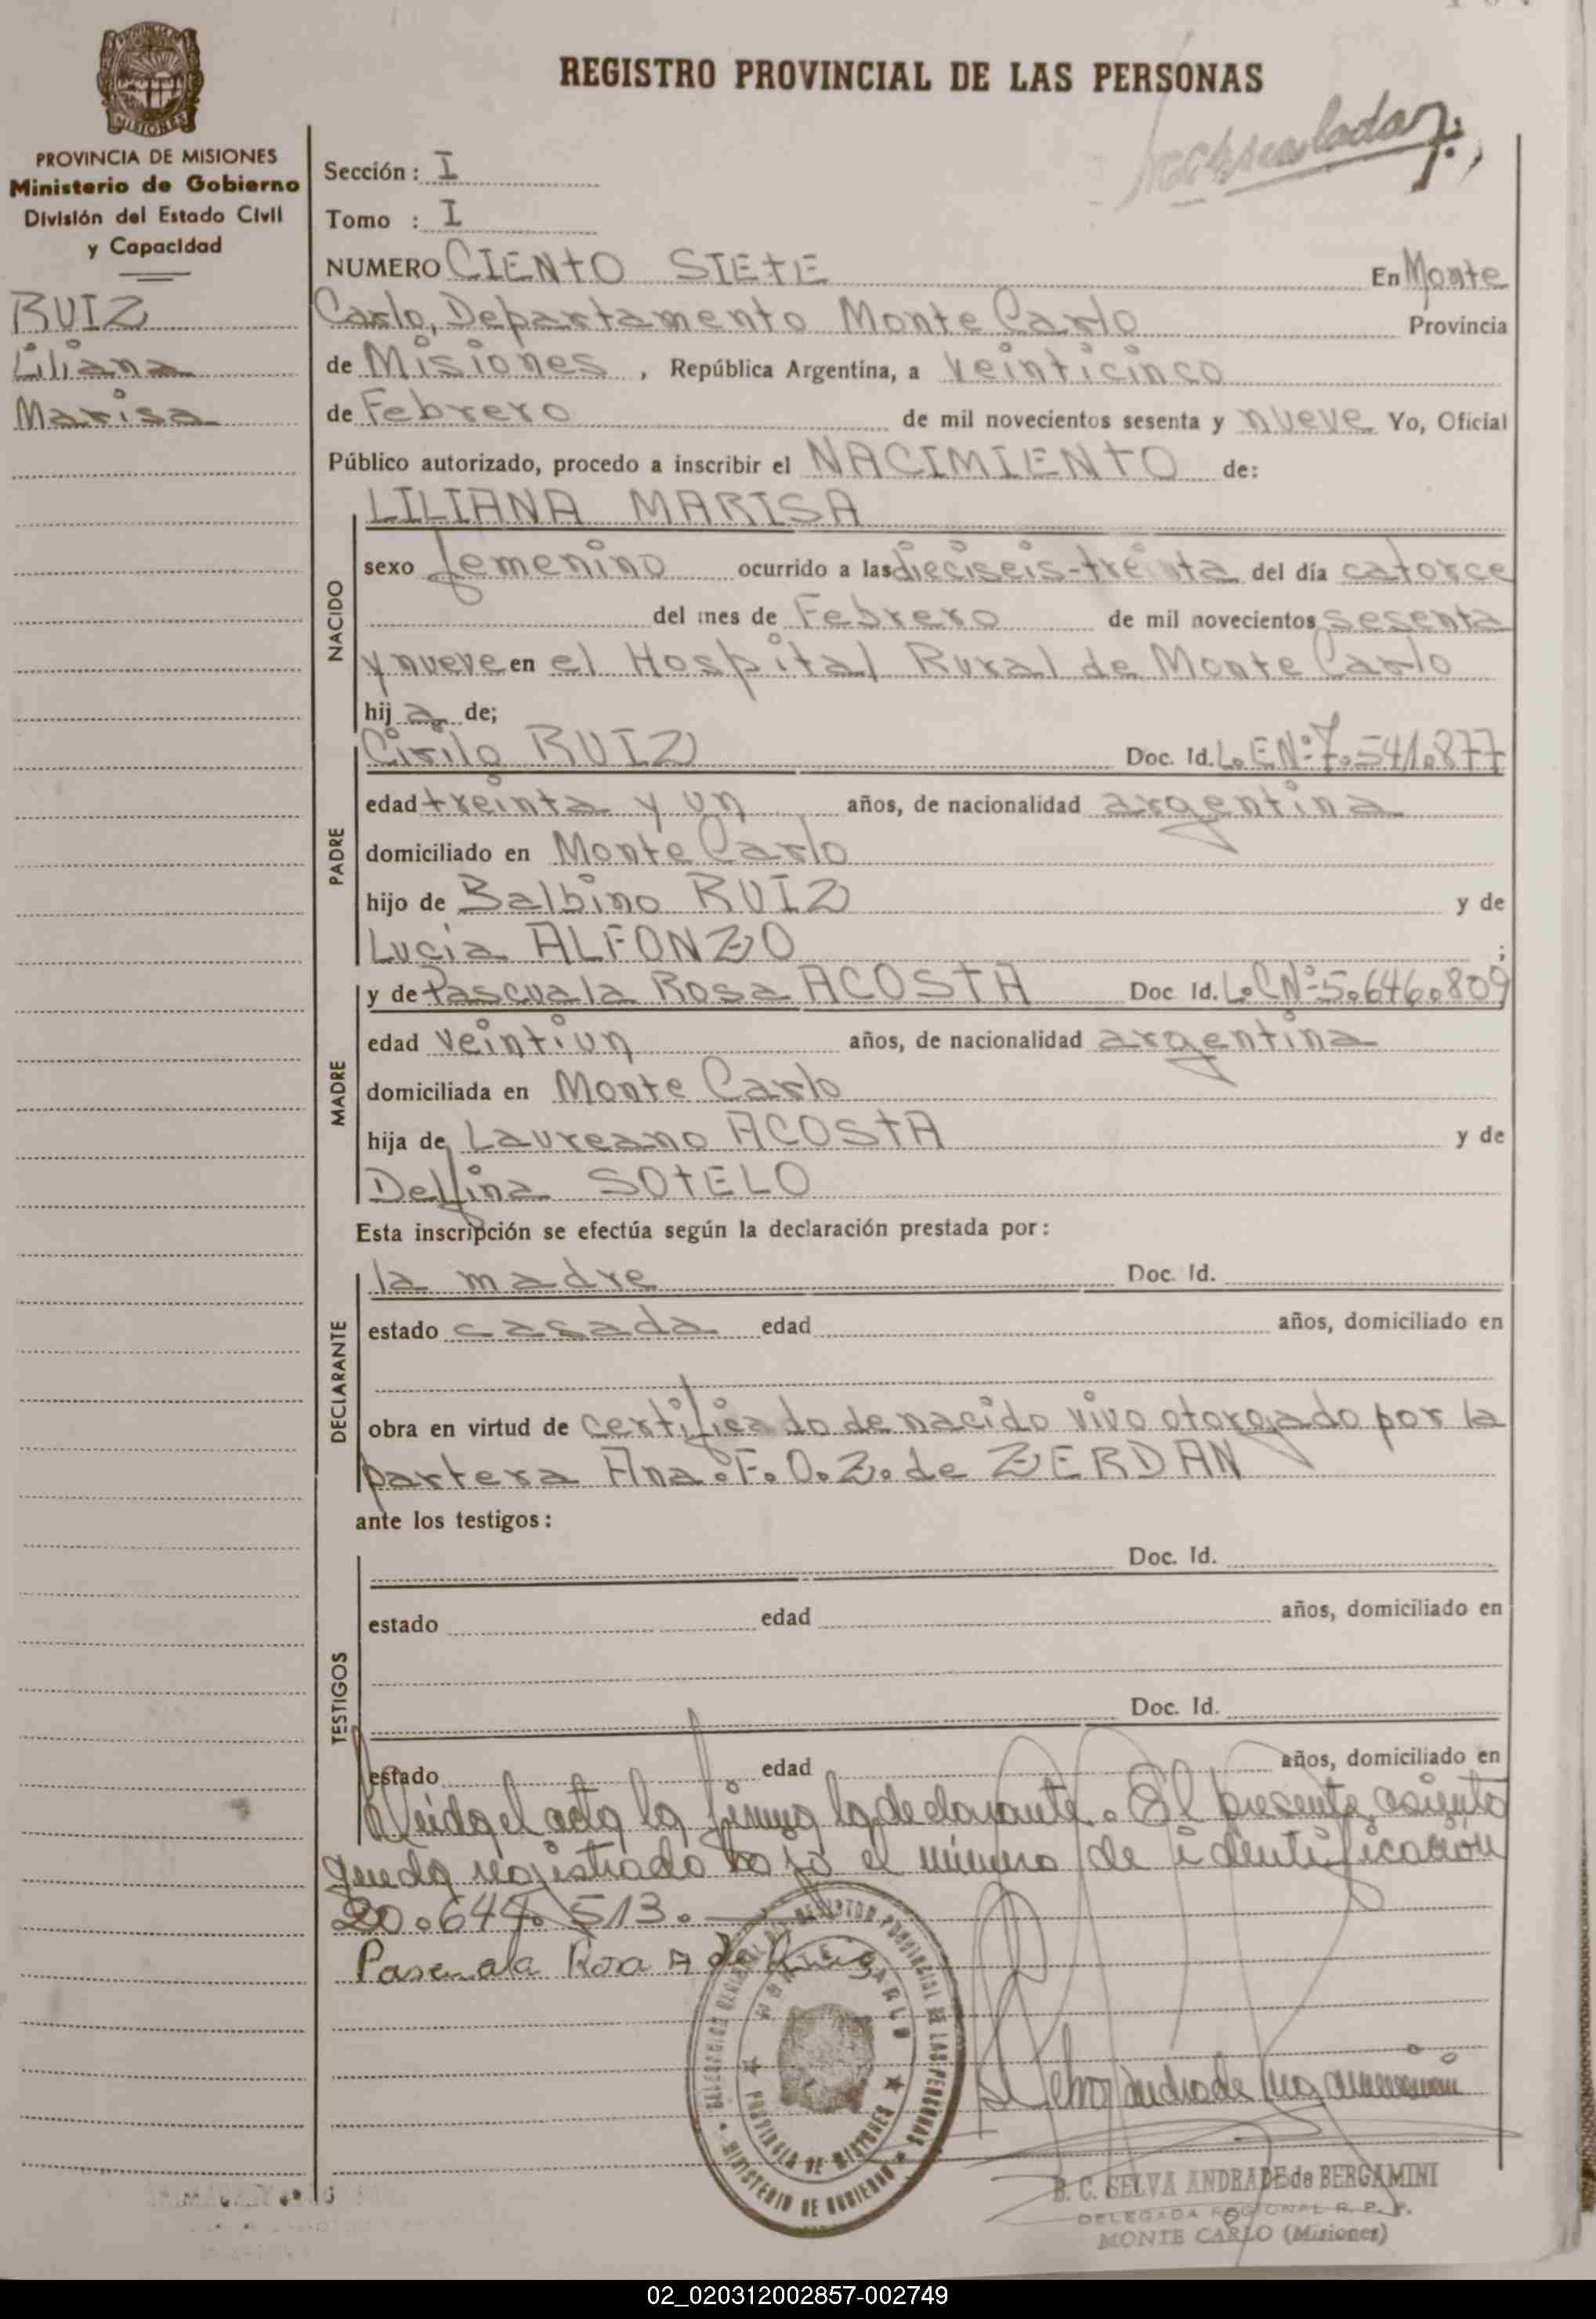 REGISTRO PROVINCIAL DE LAS PERSONAS
MISIONES
PROVINCIA DE MISIONES
Ministerio de Gobierno
División del Estado Civil
y Capacidad
RUIZ
Liliana
Marisa
Sección: I
Tomo : I
NUMERO CIENTO SIETE En Monte
Carlo, Departamento Monte Carlo Provincia
de Misiones, República Argentina, a veinticinco
de Febrero de mil novecientos sesenta y nueve Yo, Oficial
Público autorizado, procedo a inscribir el NACIMIENTO de:
LILIANA MARISA
NACIDO
sexo femenino ocurrido a las dieciseis-treinta del día catorce
del mes de Febrero de mil novecientos sesenta
y nueve en el Hospital Rural de Monte Carlo
hija de;
PADRE
Cirilo RUIZ Doc. Id. L.EN:7.541.877
edad treinta y un años, de nacionalidad argentina
domiciliado en Monte Carlo
hijo de Balbino RUIZ y de
Lucia ALFONZO ;
MADRE
y de Pascuala Rosa ACOSTA Doc Id. L.CN:5.646.809
edad veintiun años, de nacionalidad argentina
domiciliada en Monte Carlo
hija de Laureano ACOSTA y de
Delfina SOTELO
Esta inscripción se efectúa según la declaración prestada por:
DECLARANTE
la madre Doc. Id.
estado casada edad años, domiciliado en
obra en virtud de certificado de nacido vivo otorgado por la
partera Ana.F.O.Z.de ZERDAN
ante los testigos:
TESTIGOS
Doc. Id.
estado edad años, domiciliado en
Doc. Id.
estado edad años, domiciliado en
leida el acta la firma la declarante. El presente asiento
queda registrado bajo el número de identificación
20.644.513.
Pascuala Rosa A de Ruiz
MONTE CARLO
PROVINCIA DE MISIONES
MINISTERIO DE GOBIERNO
B. C. SELVA ANDRADE de BERGAMINI
DELEGADA REGIONAL R. P. P.
MONTE CARLO (Misiones)
02_020312002857-002749